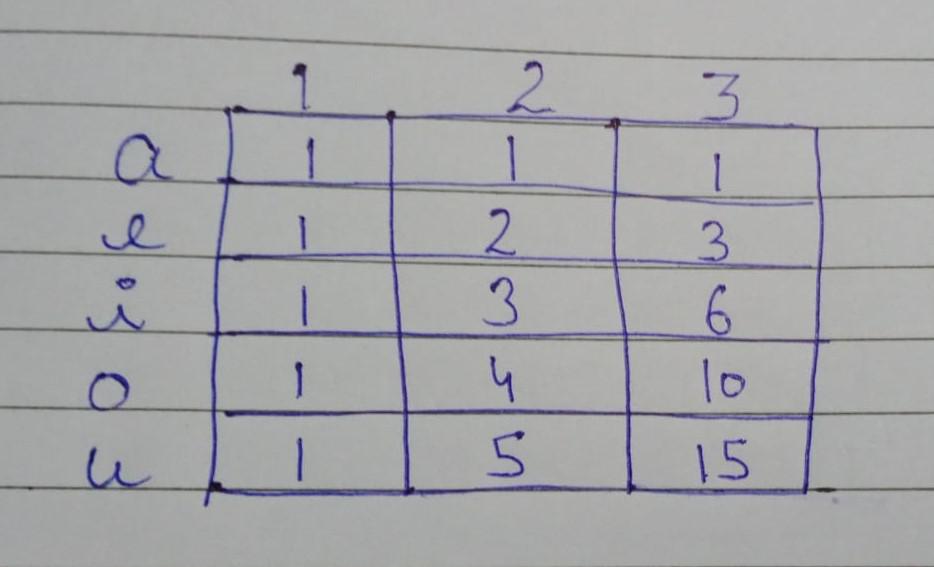 1 2 3
a 1 1 1
e 1 2 3
i 1 3 6
o 1 4 10
u 1 5 15